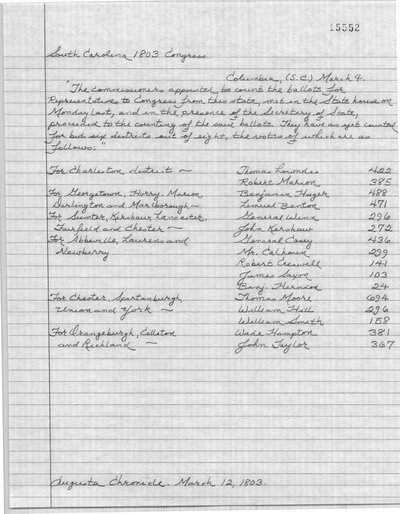 15552
South Carolina 1803 Congress
Columbia, (S.C.) March 4.
"The commissioners appointed to count the ballots for
Representatives to Congress from this state, met in the State house on
Monday last, and in the presence of the Secretary of State,
proceeded to the counting of the said ballots. They have as yet counted
for but six districts out of eight, the votes of which are as
follows:"
For Charleston district — Thomas Lowndes 422
Robert Marion 385
For Georgetown, Horry, Marion Benjamin Huger 488
Darlington and Marlborough — Lemuel Benton 471
For Sumter, Kershaw, Lancaster, General Winn 296
Fairfield and Chester — John Kershaw 272
For Abbeville, Laurens and General Casey 436
Newberry Mr. Calhoun 299
Robert Creswell 141
James Saxon 103
Benj. Herndon 24
For Chester, Spartanburgh, Thomas Moore 694
Union and York — William Hill 296
William Smith 158
For Orangeburgh, Colleton Wade Hampton 381
and Richland — John Taylor 367
Augusta Chronicle. March 12, 1803.